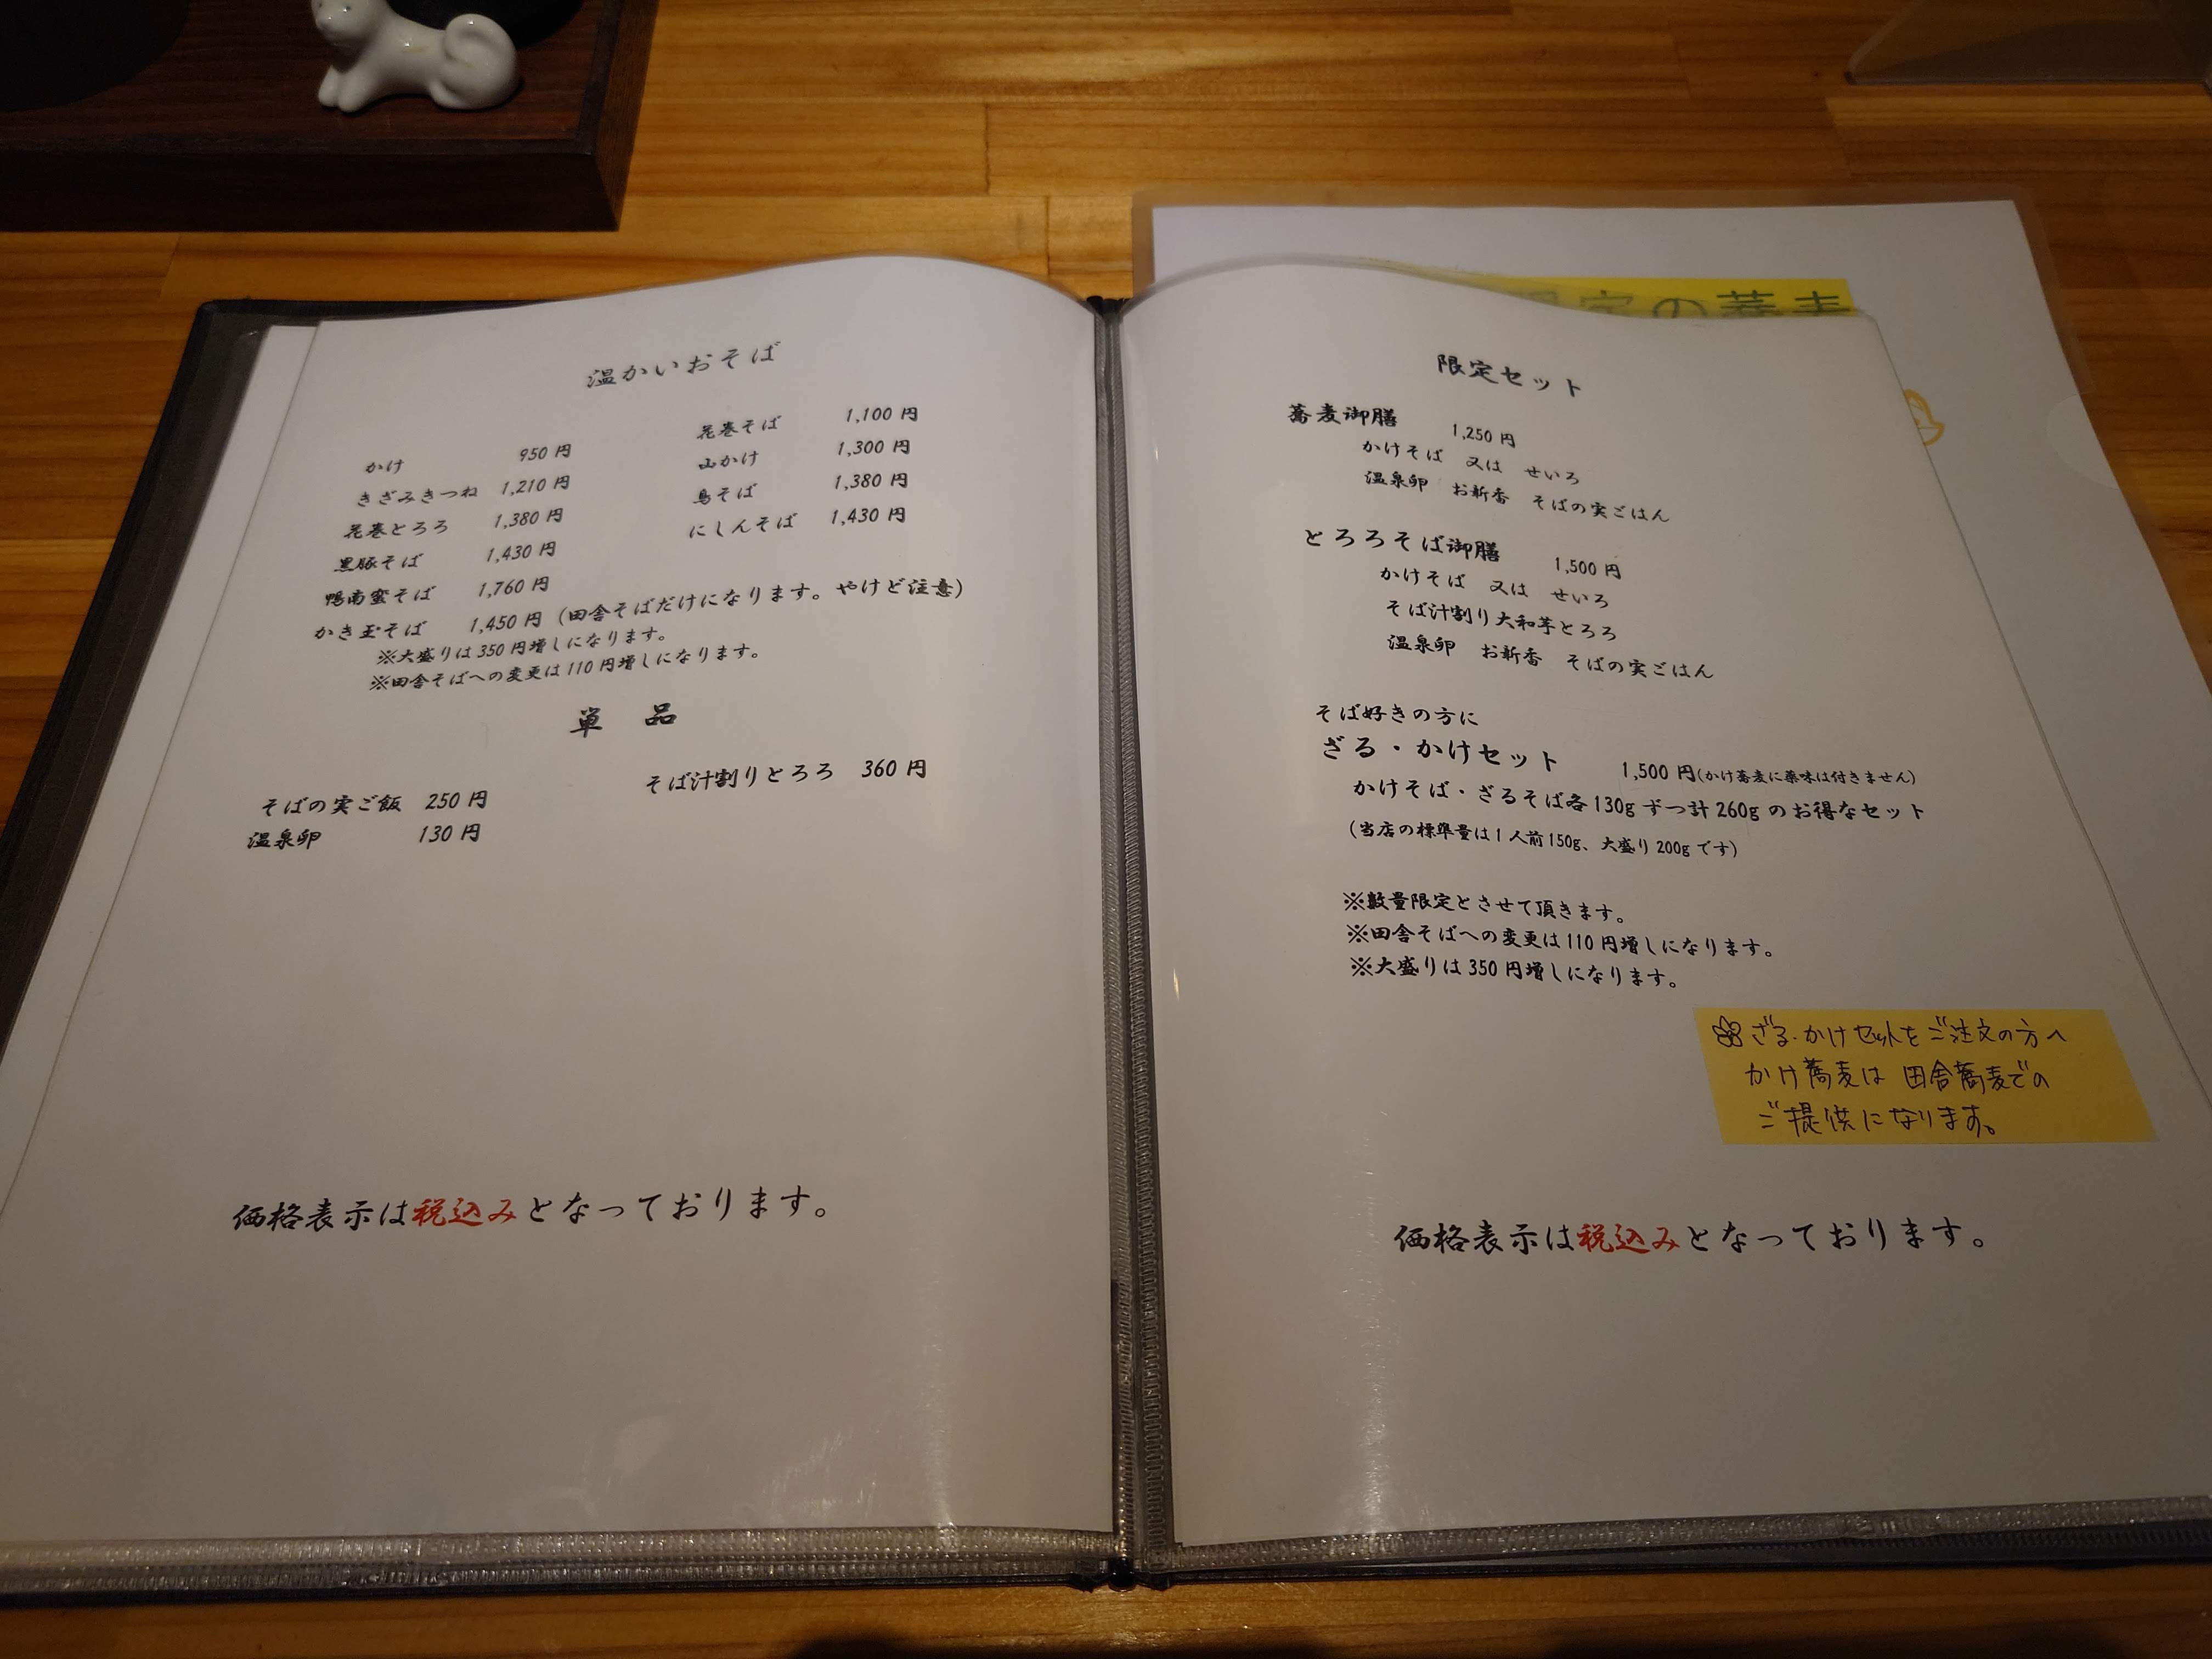 温かいおそば
かけ 950 円
きざみきつね 1,210 円
花巻とろろ 1,380 円
黒豚そば 1,430 円
鴨南蛮そば 1,760 円
かき玉そば 1,450 円 (田舎そばだけになります。やけど注意)
花巻そば 1,100 円
山かけ 1,300 円
鳥そば 1,380 円
にしんそば 1,430 円
※大盛りは 350 円増しになります。
※田舎そばへの変更は 110 円増しになります。
単 品
そばの実ご飯 250 円
温泉卵 130 円
そば汁割りとろろ 360 円
価格表示は税込みとなっております。
の蕎麦
限定セット
蕎麦御膳 1,250 円
かけそば 又は せいろ
温泉卵 お新香 そばの実ごはん
とろろそば御膳 1,500 円
かけそば 又は せいろ
そば汁割り大和芋とろろ
温泉卵 お新香 そばの実ごはん
そば好きの方に
ざる・かけセット 1,500 円(かけ蕎麦に薬味は付きません)
かけそば・ざるそば各130g ずつ計 260g のお得なセット
(当店の標準量は 1 人前 150g、大盛り 200g です)
※数量限定とさせて頂きます。
※田舎そばへの変更は 110 円増しになります。
※大盛りは 350 円増しになります。
ざる・かけセットをご注文の方へ
かけ蕎麦は 田舎蕎麦での
ご提供になります。
価格表示は税込みとなっております。